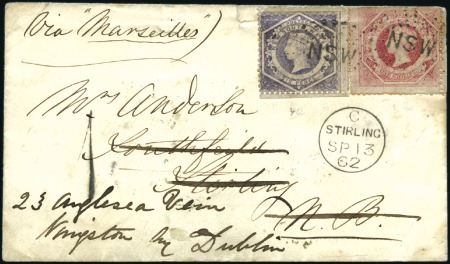 (via "Marseilles")
NSW
NSW
SIX PENCE
Mrs Anderson
Southfield
Stirling
N.B.
C
STIRLING
SP 13
62
1
23 Anglesea
Kingston by Dublin